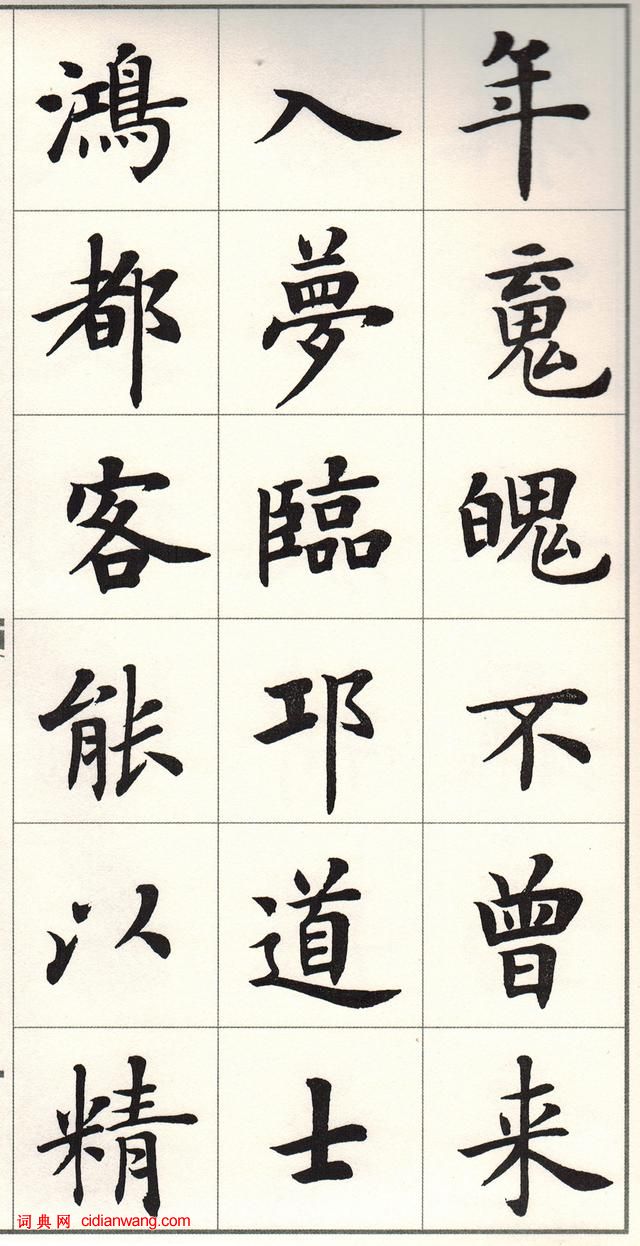 年魂魄不曾来
入夢臨邛道士
鴻都客能以精
词典网 cidianwang.com